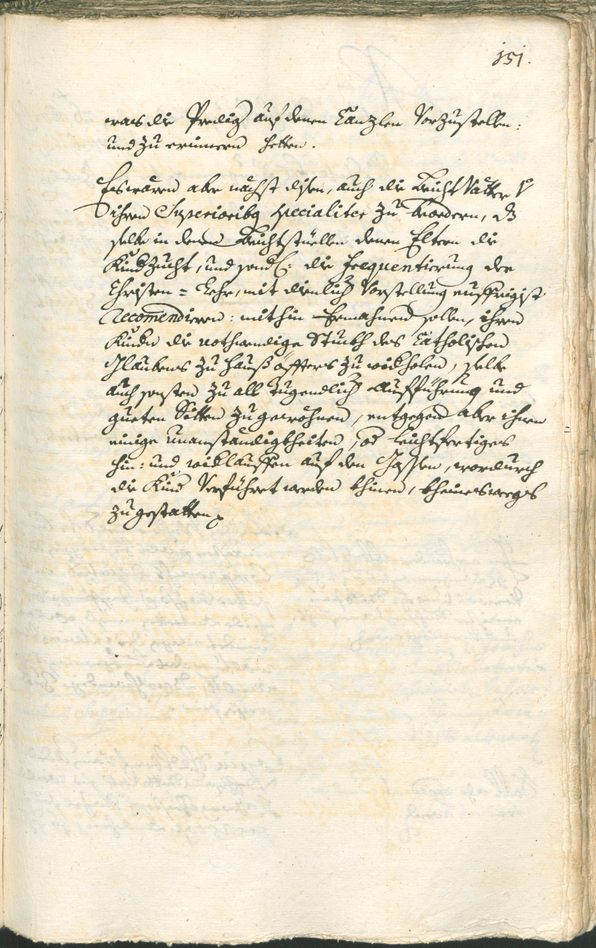 151.
was die Prediger auf denen Canzlen Vorzustellen:
und zu erinnern hetten.
Es wären aber nächst disen, auch die Beicht Vätter
ihren Superioribq specialiter zu beordern, dz
selbe in denen Beichtstüellen denen Eltern die
Kinds Zucht, und die frequentierung der
Christen=Lehr, mit dienlich Vorstellung eyffrigist
Recomendieren: mithin Ermahnen sollen, ihren
Kindern die nothwendige Stuckh des Catholischen
Glaubens zu Hauß öffters zu widholen, selbe
auch sonsten zu all tugendlich Aufführung und
gueten Sitten zu gewöhnen, entgegen aber ihnen
einige Unanständigkheiten, od leichtfertiges
hin: und widlauffen auf den Gassen, wordurch
die Kind Verführt werden khinen, kheineswegs
zu gestatten